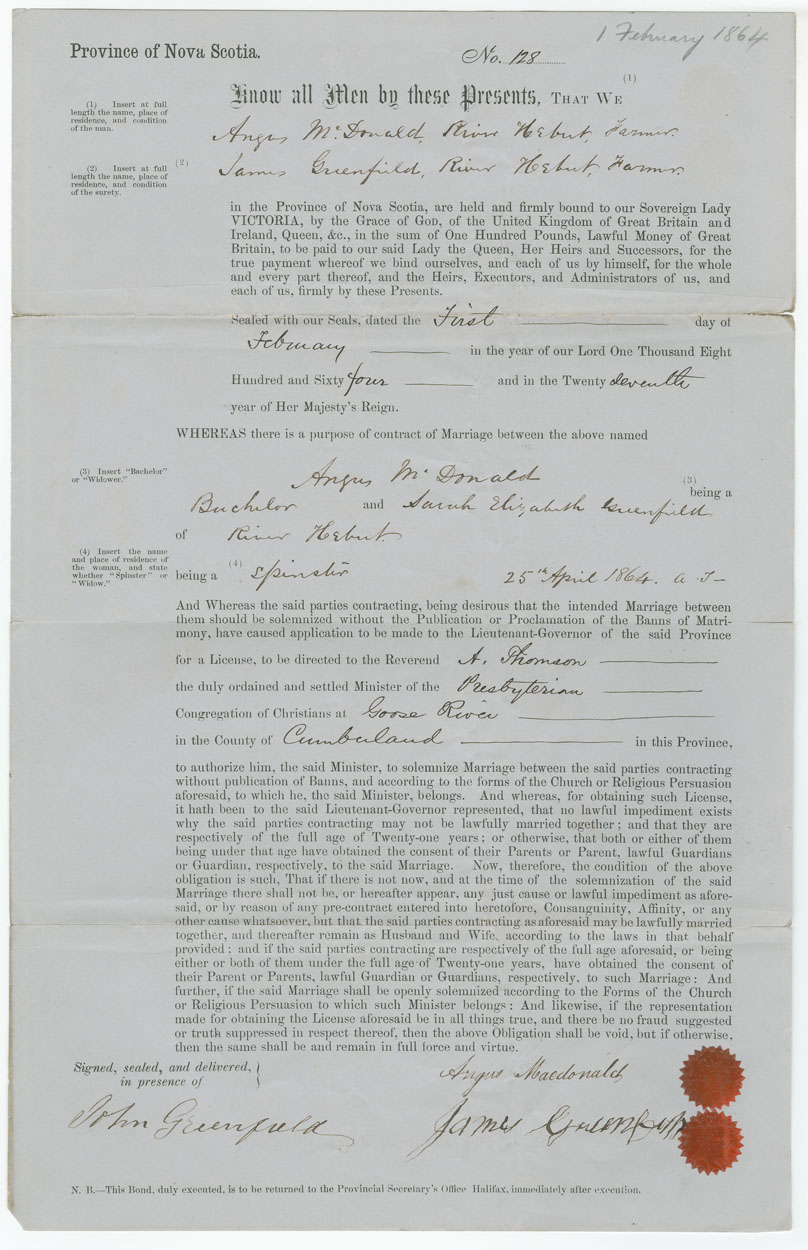 1 February 1864
Province of Nova Scotia.
No. 128
(1)
Know all Men by these Presents, THAT WE
(1) Insert at full
length the name, place of
residence, and condition
of the man.
Angus McDonald, River Hebert, Farmer.
(2) Insert at full
length the name, place of
residence, and condition
of the surety.
(2)
James Greenfield, River Hebert, Farmer.
in the Province of Nova Scotia, are held and firmly bound to our Sovereign Lady
VICTORIA, by the Grace of God, of the United Kingdom of Great Britain and
Ireland, Queen, &c., in the sum of One Hundred Pounds, Lawful Money of Great
Britain, to be paid to our said Lady the Queen, Her Heirs and Successors, for the
true payment whereof we bind ourselves, and each of us by himself, for the whole
and every part thereof, and the Heirs, Executors, and Administrators of us, and
each of us, firmly by these Presents.
Sealed with our Seals, dated the First day of
February in the year of our Lord One Thousand Eight
Hundred and Sixty four and in the Twenty seventh
year of Her Majesty's Reign.
WHEREAS there is a purpose of contract of Marriage between the above named
(3) Insert "Bachelor"
or "Widower."
Angus McDonald
(3)
being a
Bachelor and Sarah Elizabeth Greenfield
of River Hebert
(4) Insert the name
and place of residence of
the woman, and state
whether "Spinster" or
"Widow."
(4)
being a Spinster 25th April 1864. A. T
And Whereas the said parties contracting, being desirous that the intended Marriage between
them should be solemnized without the Publication or Proclamation of the Banns of Matri-
mony, have caused application to be made to the Lieutenant-Governor of the said Province
for a License, to be directed to the Reverend A. Thomson
the duly ordained and settled Minister of the Presbyterian
Congregation of Christians at Goose River
in the County of Cumberland in this Province,
to authorize him, the said Minister, to solemnize Marriage between the said parties contracting
without publication of Banns, and according to the forms of the Church or Religious Persuasion
aforesaid, to which he, the said Minister, belongs. And whereas, for obtaining such License,
it hath been to the said Lieutenant-Governor represented, that no lawful impediment exists
why the said parties contracting may not be lawfully married together; and that they are
respectively of the full age of Twenty-one years; or otherwise, that both or either of them
being under that age have obtained the consent of their Parents or Parent, lawful Guardians
or Guardian, respectively, to the said Marriage. Now, therefore, the condition of the above
obligation is such, That if there is not now, and at the time of the solemnization of the said
Marriage there shall not be, or hereafter appear, any just cause or lawful impediment as afore-
said, or by reason of any pre-contract entered into heretofore, Consanguinity, Affinity, or any
other cause whatsoever, but that the said parties contracting as aforesaid may be lawfully married
together, and thereafter remain as Husband and Wife, according to the laws in that behalf
provided; and if the said parties contracting are respectively of the full age aforesaid, or being
either or both of them under the full age of Twenty-one years, have obtained the consent of
their Parent or Parents, lawful Guardian or Guardians, respectively, to such Marriage: And
further, if the said Marriage shall be openly solemnized according to the Forms of the Church
or Religious Persuasion to which such Minister belongs: And likewise, if the representation
made for obtaining the License aforesaid be in all things true, and there be no fraud suggested
or truth suppressed in respect thereof, then the above Obligation shall be void, but if otherwise,
then the same shall be and remain in full force and virtue.
Signed, sealed, and delivered,
in presence of
Angus Macdonald
John Greenfield
James Greenfield
N. B.—This Bond, duly executed, is to be returned to the Provincial Secretary's Office Halifax, immediately after execution.